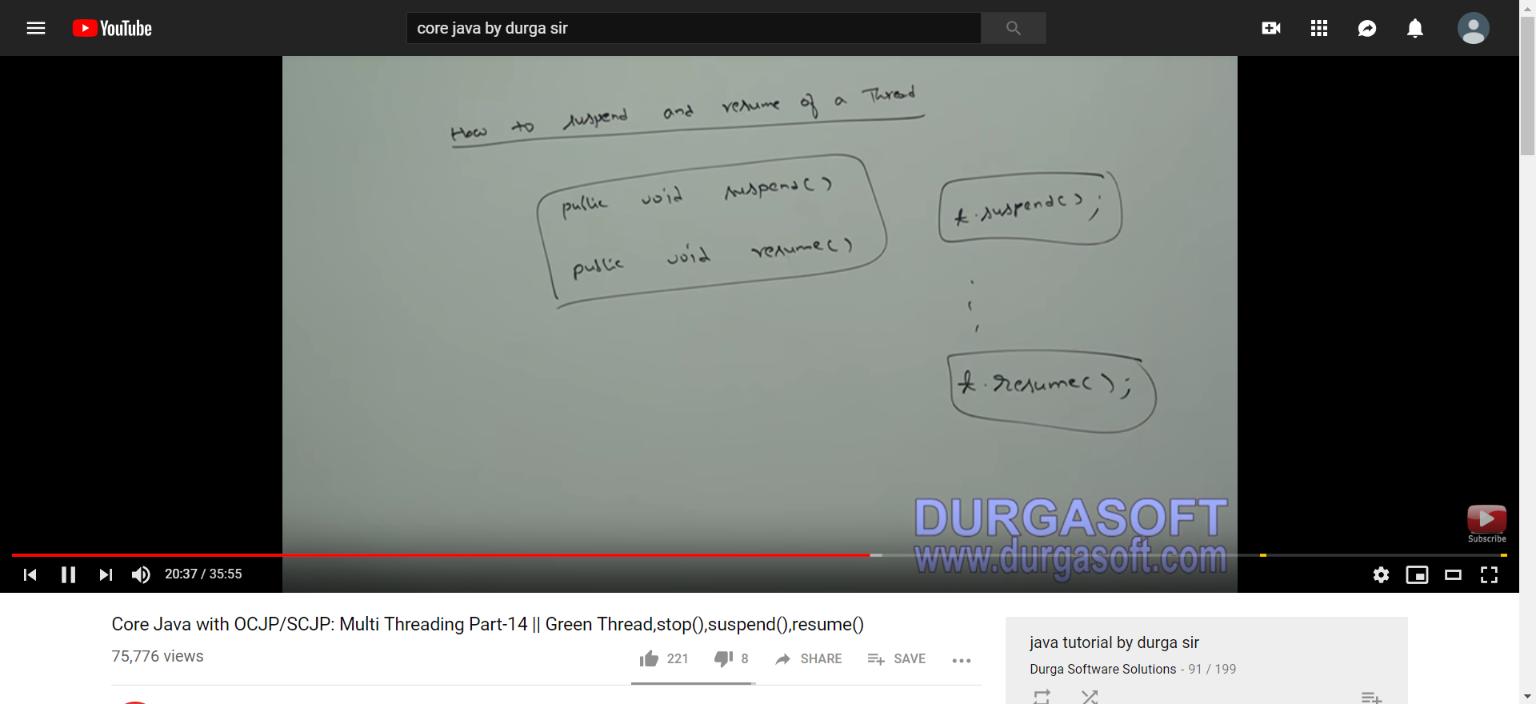 YouTube
core java by durga sir
How to suspend and resume of a Thread
public void suspend()
public void resume()
t.suspend();
t.resume();
DURGASOFT
www.durgasoft.com
Subscribe
20:37 / 35:55
Core Java with OCJP/SCJP: Multi Threading Part-14 || Green Thread,stop(),suspend(),resume()
75,776 views
221
8
SHARE
SAVE
java tutorial by durga sir
Durga Software Solutions - 91 / 199